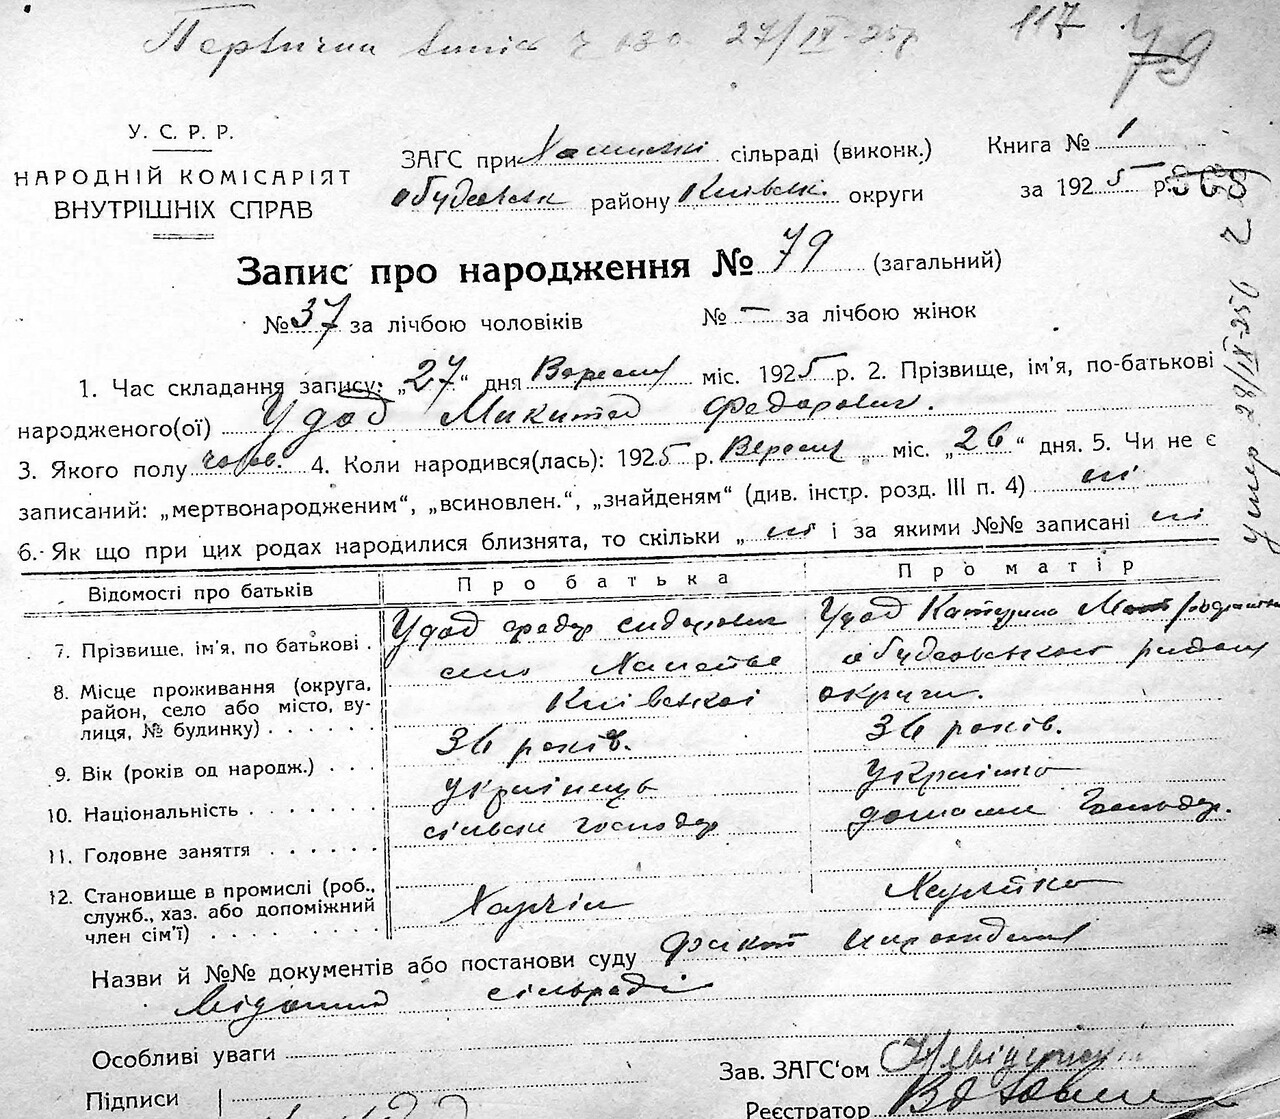 27/IX-25р 117
79
У. С. Р. Р.
НАРОДНІЙ КОМІСАРІЯТ
ВНУТРІШНІХ СПРАВ
ЗАГС при сільраді (виконк.)
району Київськ. округи
Книга № 1
за 1925 р.
Запис про народження № 79 (загальний)
№ 37 за лічбою чоловіків № — за лічбою жінок
1. Час складання запису: „27“ дня Вересня міс. 1925 р. 2. Прізвище, ім'я, по-батькові
народженого(ої) Удод Микита Федорович.
3. Якого полу чолов. 4. Коли народився(лась): 1925 р. Вересня міс. „26“ дня. 5. Чи не є
записаний: „мертвонародженим“, „всиновлен.“, „знайденям“ (див. інстр. розд. III п. 4) ні
6. Як що при цих родах народилися близнята, то скільки „ ні і за якими №№ записані ні
Відомості про батьків Про батька Про матір
7. Прізвище, ім'я, по батькові . Удод Федор Сидорович Удод Катерина
8. Місце проживання (округа, район, село або місто, вулиця, № будинку) . . . . . . село Київської округи.
9. Вік (років од народж.) . . . 36 років. 36 років.
10. Національність . . . . . . . українець українка
11. Головне заняття . . . . . . сільськ господар домашн господар.
12. Становище в промислі (роб., служб., хаз. або допоміжний член сім'ї) . . . . . . . . .
Назви й №№ документів або постанови суду факт народження
відомий сільраді
Особливі уваги
Підписи
Зав. ЗАГС'ом
Реєстратор
умер 28/IX-25